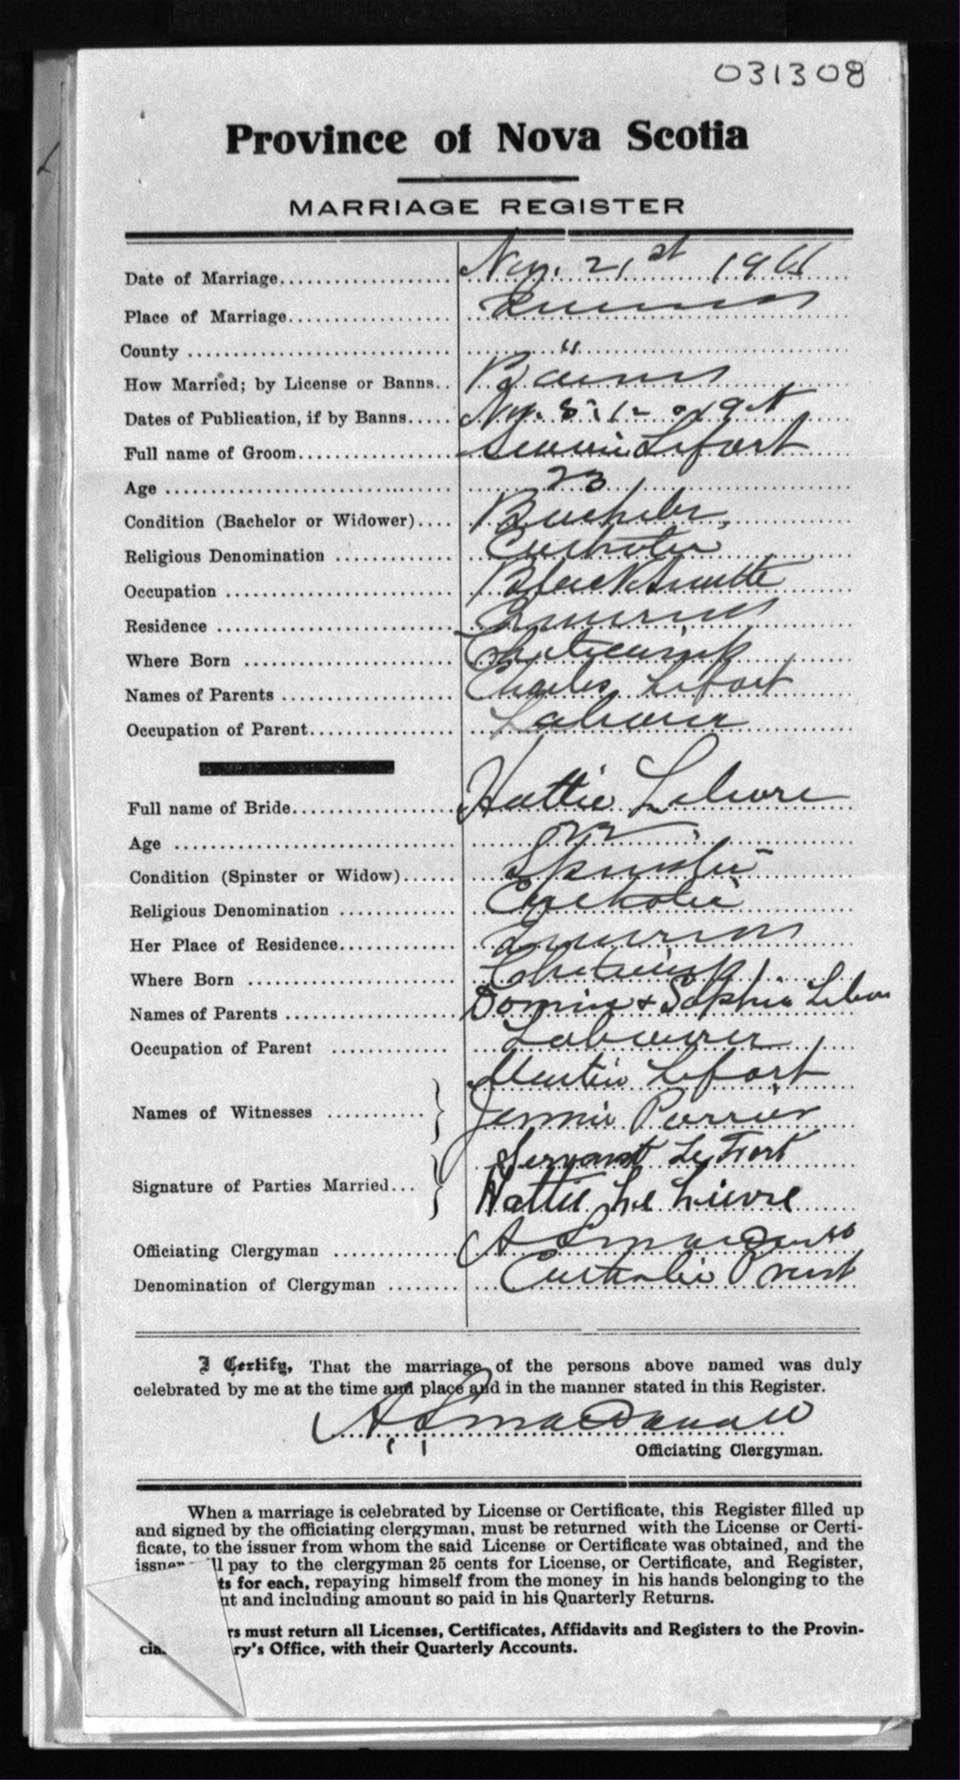 031308
Province of Nova Scotia
MARRIAGE REGISTER
Date of Marriage Nov. 21st 19
Place of Marriage
County "
How Married; by License or Banns Banns
Dates of Publication, if by Banns Nov.
Full name of Groom Lefort
Age 23
Condition (Bachelor or Widower) Bachelor
Religious Denomination Catholic
Occupation Blacksmith
Residence
Where Born Cheticamp
Names of Parents Charles Lefort
Occupation of Parent Labourer
Full name of Bride Hattie
Age 22
Condition (Spinster or Widow) Spinster
Religious Denomination Catholic
Her Place of Residence
Where Born Cheticamp
Names of Parents & Sophie
Occupation of Parent Labourer
Names of Witnesses Martin Lefort
Jennie
Signature of Parties Married Le Fort
Hattie Le Lievre
Officiating Clergyman
Denomination of Clergyman Catholic Priest
I Certify, That the marriage of the persons above named was duly
celebrated by me at the time and place and in the manner stated in this Register.
MacDonald
Officiating Clergyman.
When a marriage is celebrated by License or Certificate, this Register filled up
and signed by the officiating clergyman, must be returned with the License or Certi-
ficate, to the issuer from whom the said License or Certificate was obtained, and the
pay to the clergyman 25 cents for License, or Certificate, and Register,
for each, repaying himself from the money in his hands belonging to the
and including amount so paid in his Quarterly Returns.
must return all Licenses, Certificates, Affidavits and Registers to the Provin-
Office, with their Quarterly Accounts.